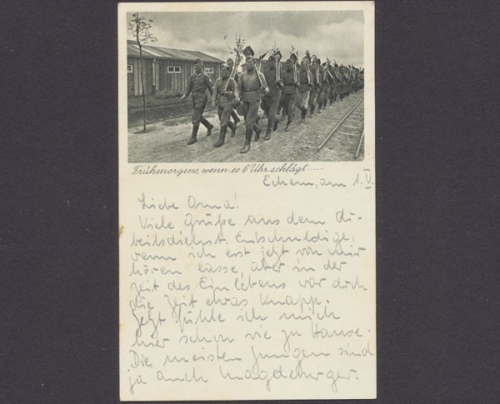 Frühmorgens, wenn es 6 Uhr schlägt.....
Echem, am 1.V.
Liebe Oma!
Viele Grüße aus dem Ar-
beitsdienst. Entschuldige,
wenn ich erst jetzt von mir
hören lasse, aber in der
Zeit des Einlebens war doch
die Zeit etwas knapp.
Jetzt fühle ich mich
hier schon wie zu Hause.
Die meisten Jungen sind
ja auch Magdeburger.